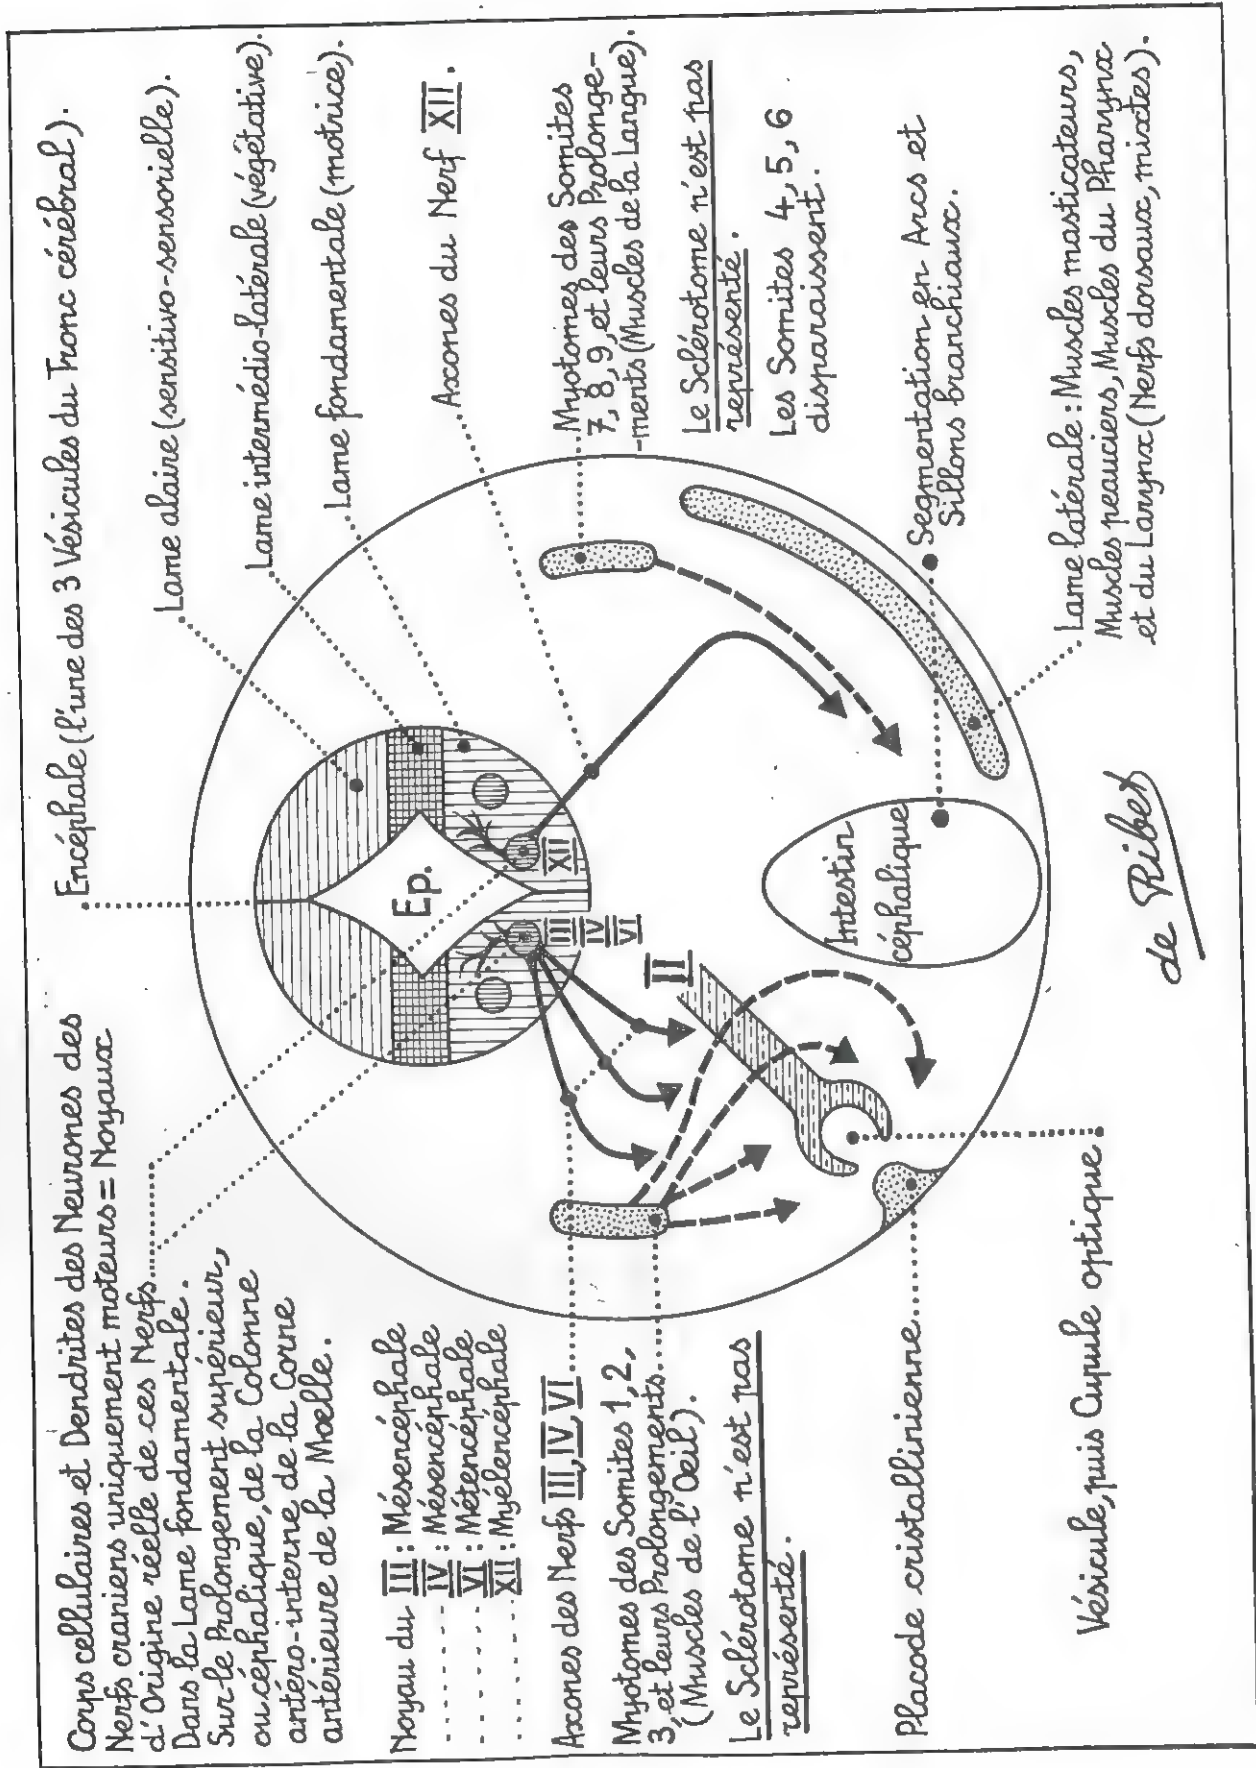 Encéphale (l'une des 3 Vésicules du Tronc cérébral).
Corps cellulaires et Dendrites des Neurones des
Nerfs craniens uniquement moteurs = Noyaux
d'Origine réelle de ces Nerfs
Dans la Lame fondamentale.
Sur le Prolongement supérieur,
ou céphalique, de la Colonne
antéro-interne de la Corne
antérieure de la Moelle.
Noyau du III : Mésencéphale
IV : Mésencéphale
VI : Métencéphale
XII : Myélencéphale
Axones des Nerfs III, IV, VI
Myotomes des Somites 1, 2,
3, et leurs Prolongements
(Muscles de l'Oeil).
Le Sclérotome n'est pas
représenté.
Placode cristallinienne
Vésicule, puis Cupule optique
Ep.
III
IV
VI
XII
II
Intestin
céphalique
Lame alaire (sensitivo-sensorielle).
Lame intermédio-latérale (végétative).
Lame fondamentale (motrice).
Axones du Nerf XII.
Myotomes des Somites
7, 8, 9, et leurs Prolonge-
-ments (Muscles de la Langue).
Le Sclérotome n'est pas
représenté.
Les Somites 4, 5, 6
disparaissent.
Segmentation en Arcs et
Sillons branchiaux.
Lame latérale : Muscles masticateurs,
Muscles peauciers, Muscles du Pharynx
et du Larynx (Nerfs dorsaux, mixtes).
de Ribet